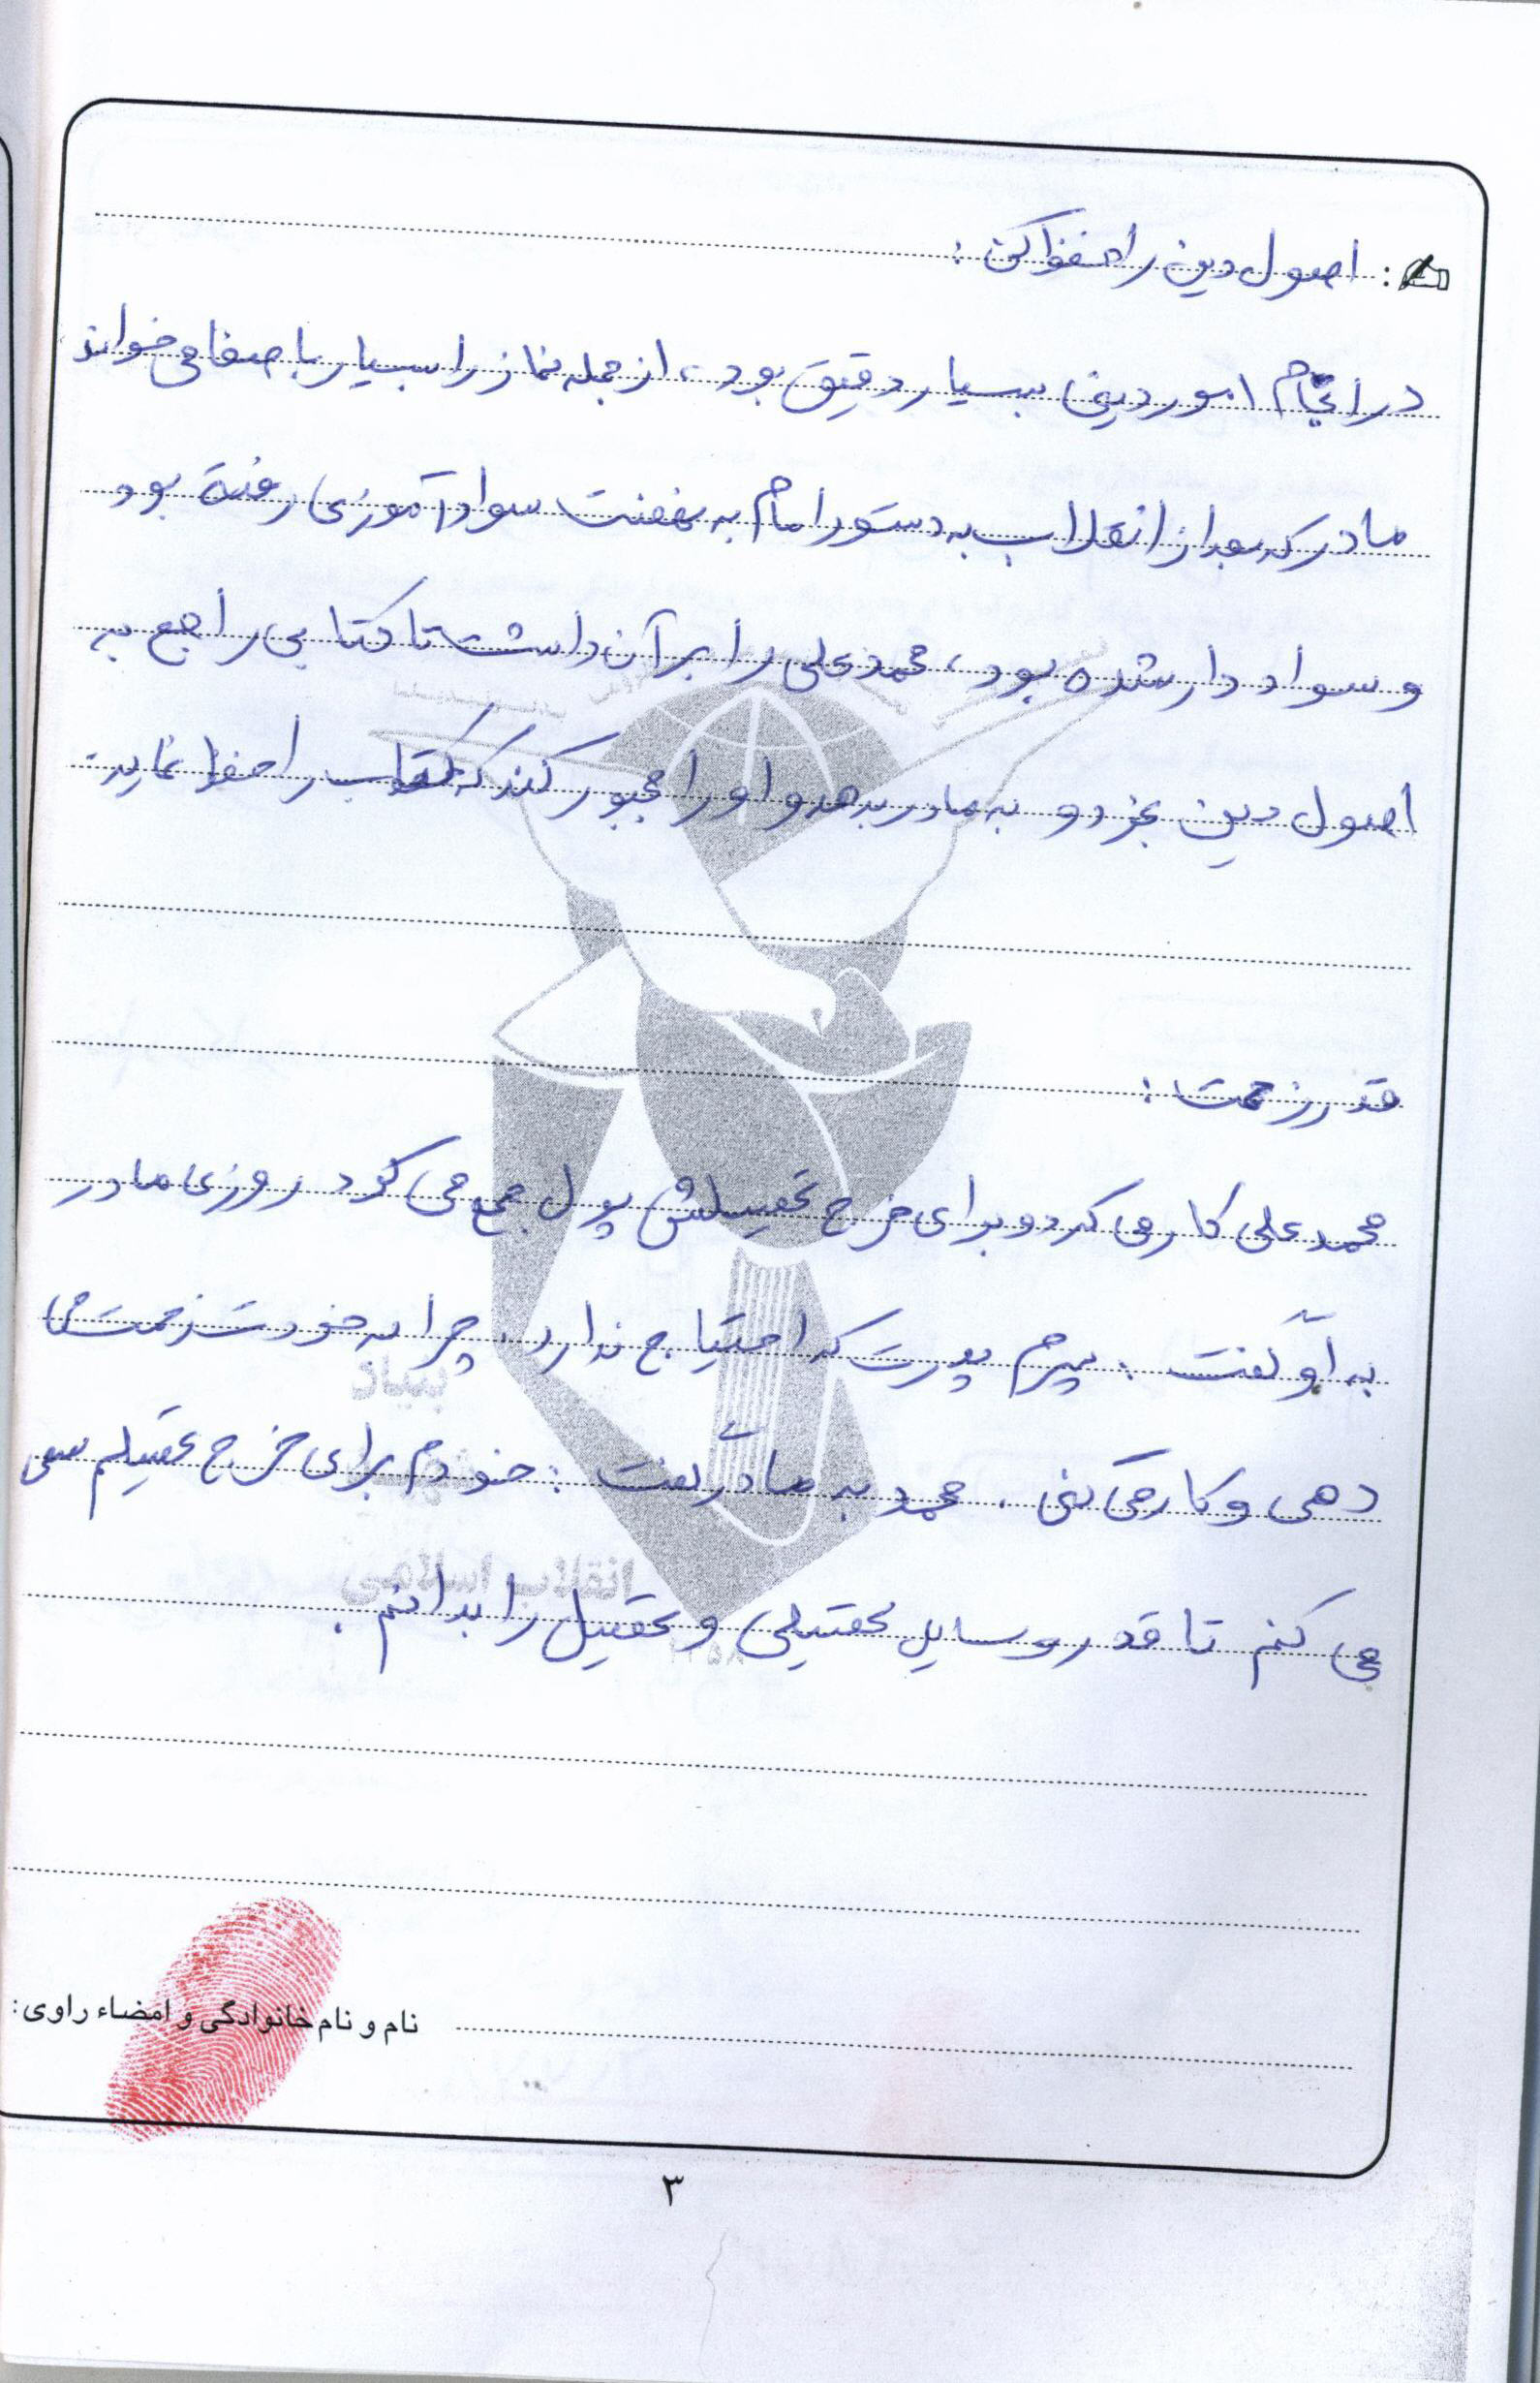 اصول دین را حفظ کن:
در انجام امور دینی بسیار دقیق بود، از جمله نماز را بسیار با صفا می خواند
مادر که بعد از انقلاب به دستور امام به نهضت سواد آموزی رفته بود
و سواد دار شده بود، محمد علی را بر آن داشت تا کتابی راجع به
اصول دین بخرد و به مادر بدهد و او را مجبور کند که کتاب را حفظ نماید.
قدر زحمت:
محمد علی کار می کرد و برای خرج تحصیلش پول جمع می کرد روزی مادر
به او گفت: پسرم پدرت که احتیاج ندارد. چرا به خودت زحمت می
دهی و کار می کنی. محمد به مادر گفت: خودم برای خرج تحصیلم سعی
می کنم تا قدر وسایل تحصیلی و تحصیل را بدانم.
بنیاد
انقلاب اسلامی
نام و نام خانوادگی و امضاء راوی:
۳